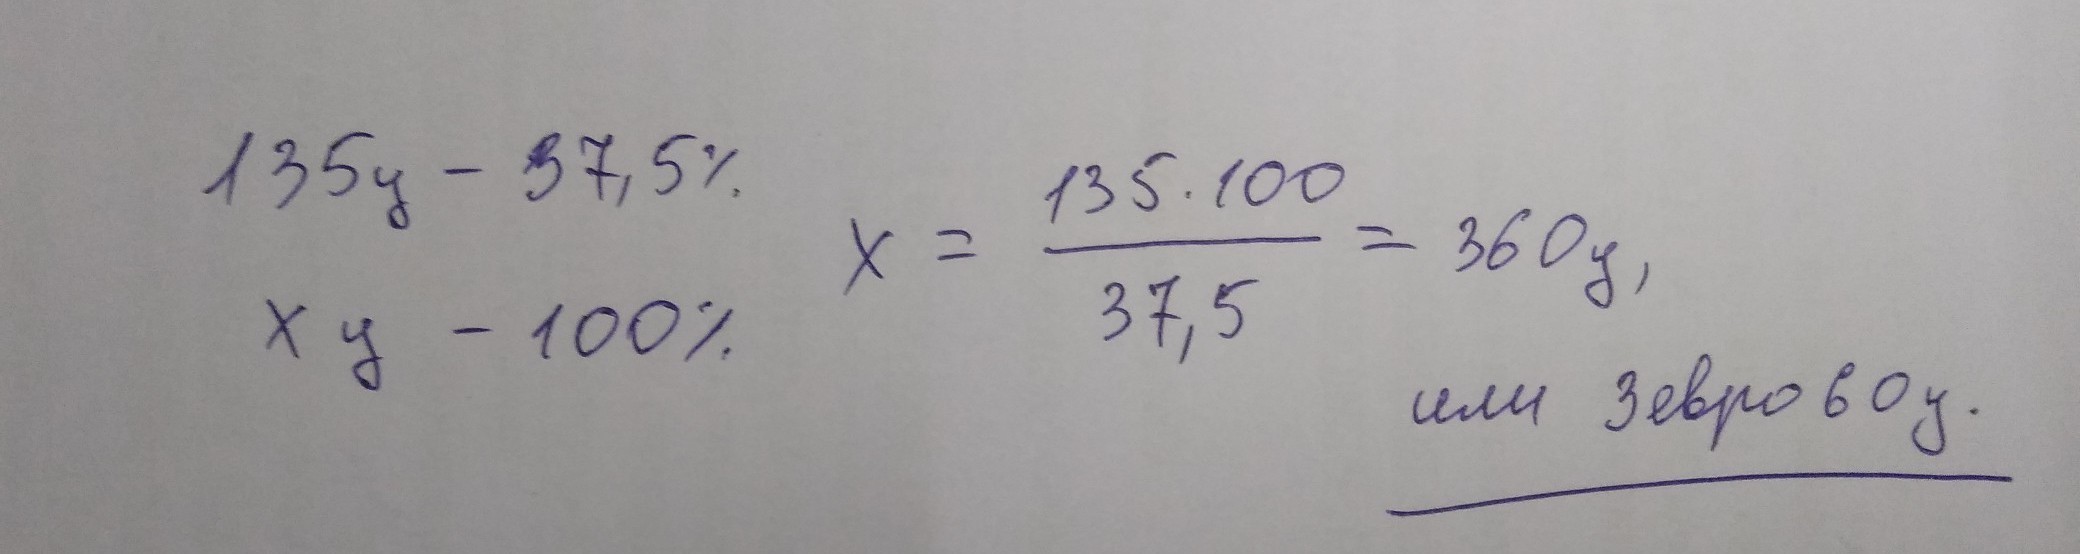 135ц - 37,5%
x ц - 100%
x = 135·100 / 37,5 = 360ц,
или 3евро 60ц.